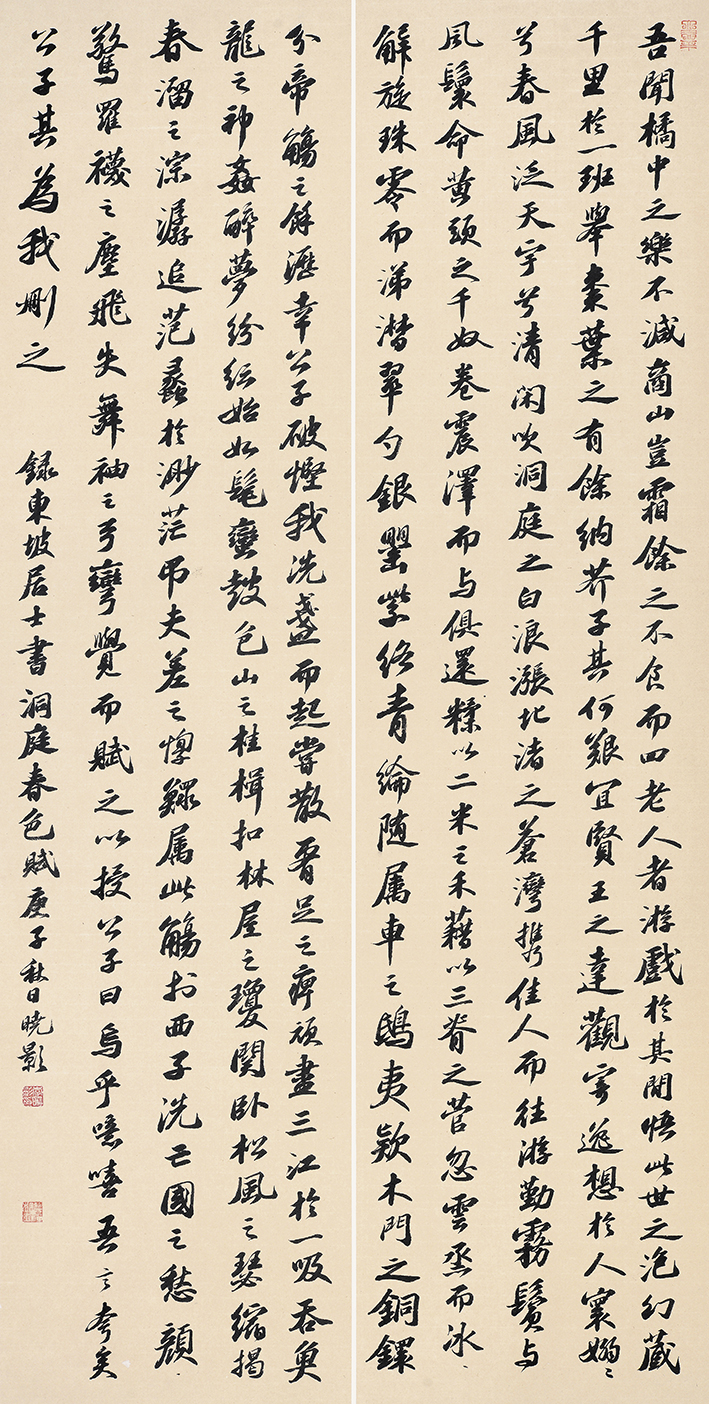 吾聞橘中之樂不減商山豈霜餘之不食而四老人者游戲於其間悟此世之泡幻藏
千里於一班舉棗葉之有餘納芥子其何艱宜賢王之達觀寄逸想於人寰嫋〻
兮春風泛天宇兮清閑吹洞庭之白浪漲北渚之蒼灣攜佳人而往游勤霧鬢与
風鬟命黃頭之千奴卷震澤而与俱還糅以二米之禾藉以三脊之菅忽雲烝而冰
解旋珠零而涕潸翠勺銀罌紫絡青綸隨属車之鴟夷款木門之銅鐶
分帝觴之餘瀝幸公子破慳我洗盞而起嘗散要足之痹頑盡三江於一吸吞魚
龍之神姦醉夢紛紜始如髦蠻鼓包山之桂楫扣林屋之瓊関臥松風之瑟縮揭
春溜之淙潺追范蠡於渺茫弔夫差之惸鰥属此觴於西子洗亡國之愁顏
驚羅襪之塵飛失舞袖之弓彎覺而賦之以授公子曰烏乎噫嘻吾言夸矣
公子其為我刪之
錄東坡居士書洞庭春色賦庚子秋日曉影